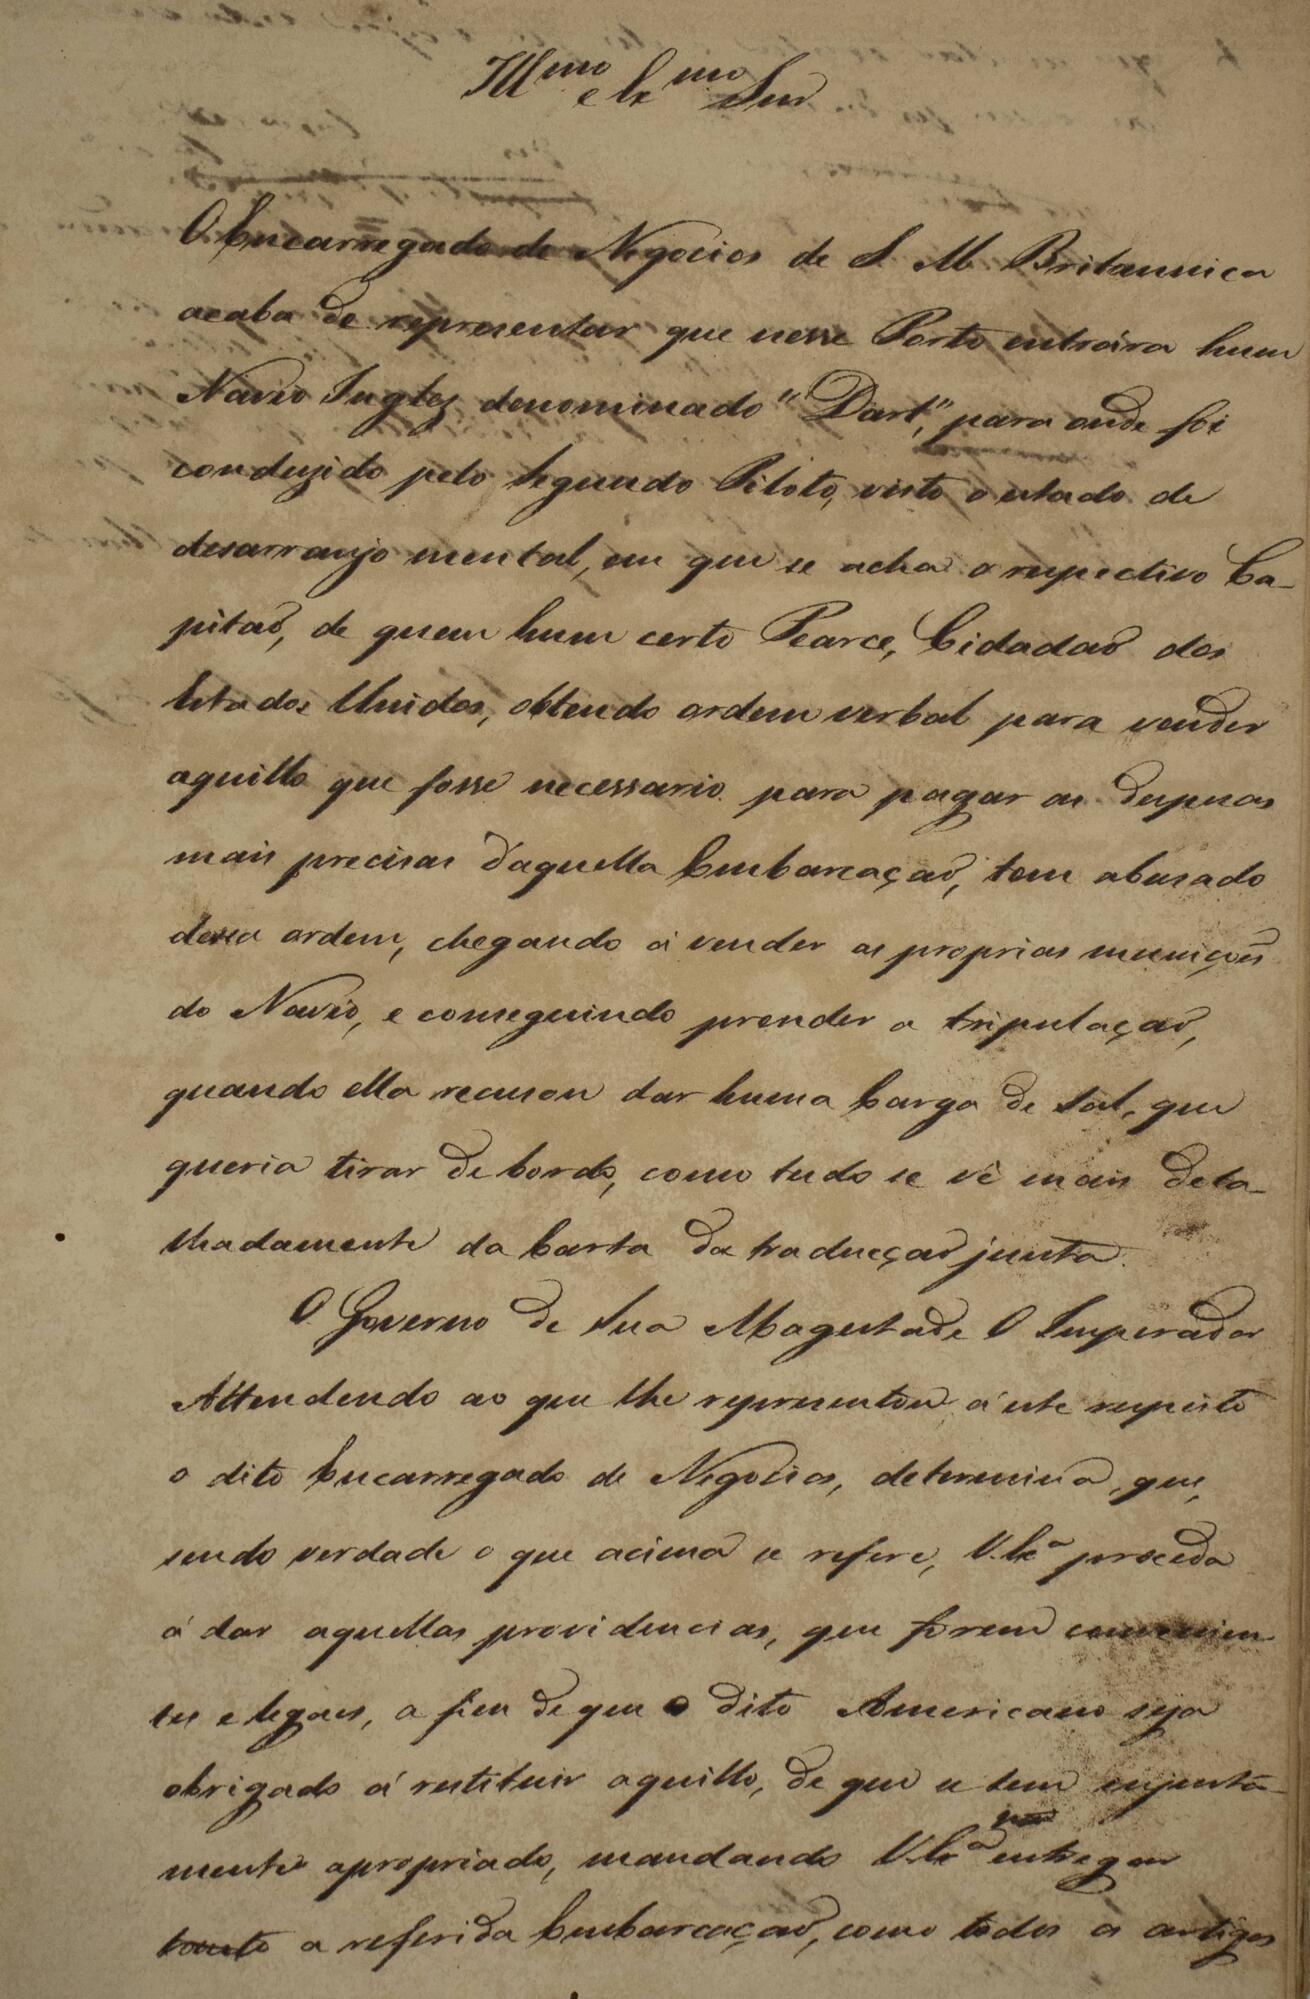 Ill.mo e Ex.mo Snr
O Encarregado de Negocios de S. M. Britannica
acaba de representar que nesse Porto entrára hum
Navio Inglez denominado "Dart", para onde foi
conduzido pelo Segundo Piloto, visto o estado de
desarranjo mental, em que se acha o respectivo Ca-
pitaõ, de quem hum certo Pearce, Cidadaõ dos
Estados Unidos, obtendo ordem verbal para vender
aquillo que fosse necessario para pagar as despesas
mais precisas d'aquella Embarcaçaõ, tem abusado
dessa ordem, chegando á vender as proprias muniçoẽs
do Navio, e conseguindo prender a tripulaçaõ,
quando ella recusou dar huma Carga de Sal, que
queria tirar de bordo, como tudo se vê mais deta-
lhadamente da Carta da traducçaõ junta.
O Governo de Sua Magestade O Imperador
Attendendo ao que lhe representou á este respeito
o dito Encarregado de Negocios, determina, que,
sendo verdade o que acima se refere, V. Ex.a proceda
á dar aquellas providencias, que forem convenien-
tes e legaes, a fim de que o dito Americano seja
obrigado á restituir aquillo, de que se tem injusta-
mente apropriado, mandando V. Ex.a entregar
tanto a referida Embarcaçaõ, como todos os artigos